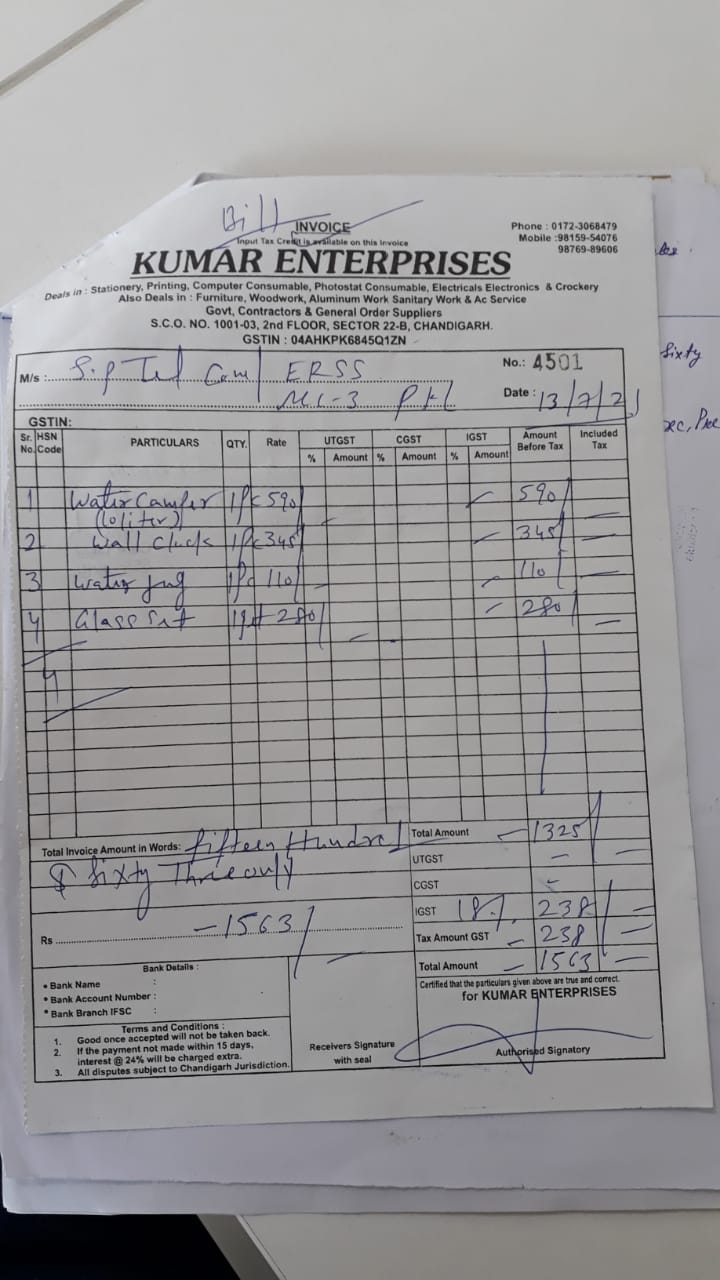 Bill
INVOICE
Input Tax Credit is available on this Invoice
Phone : 0172-3068479
Mobile :98159-54076
98769-89606
KUMAR ENTERPRISES
Deals in : Stationery, Printing, Computer Consumable, Photostat Consumable, Electricals Electronics & Crockery
Also Deals in : Furniture, Woodwork, Aluminum Work Sanitary Work & Ac Service
Govt, Contractors & General Order Suppliers
S.C.O. NO. 1001-03, 2nd FLOOR, SECTOR 22-B, CHANDIGARH.
GSTIN : 04AHKPK6845Q1ZN
M/s : S.P Tel Com/ ERSS
No.: 4501
PKL
Date : 13/7/21
GSTIN:
Sr. No. HSN Code PARTICULARS QTY. Rate UTGST % Amount CGST % Amount IGST % Amount Amount Before Tax Included Tax
1 Water Camper 1Pc 590/ 590/
(10 liter)
2 Wall Clock 1Pc 345 345/
3 Water Jug 1Pc 110/ 110/
4 Glass Set 1 set 280/ 280/
4
Total Invoice Amount in Words: Fifteen Hundred
& Sixty Three only
Total Amount 1325
UTGST
CGST
IGST 18% 238
Rs 1563/
Tax Amount GST 238
Total Amount 1563
Bank Details :
• Bank Name :
• Bank Account Number :
• Bank Branch IFSC :
Terms and Conditions :
1. Good once accepted will not be taken back.
2. If the payment not made within 15 days,
interest @ 24% will be charged extra.
3. All disputes subject to Chandigarh Jurisdiction.
Receivers Signature
with seal
Certified that the particulars given above are true and correct.
for KUMAR ENTERPRISES
Authorised Signatory
Sixty